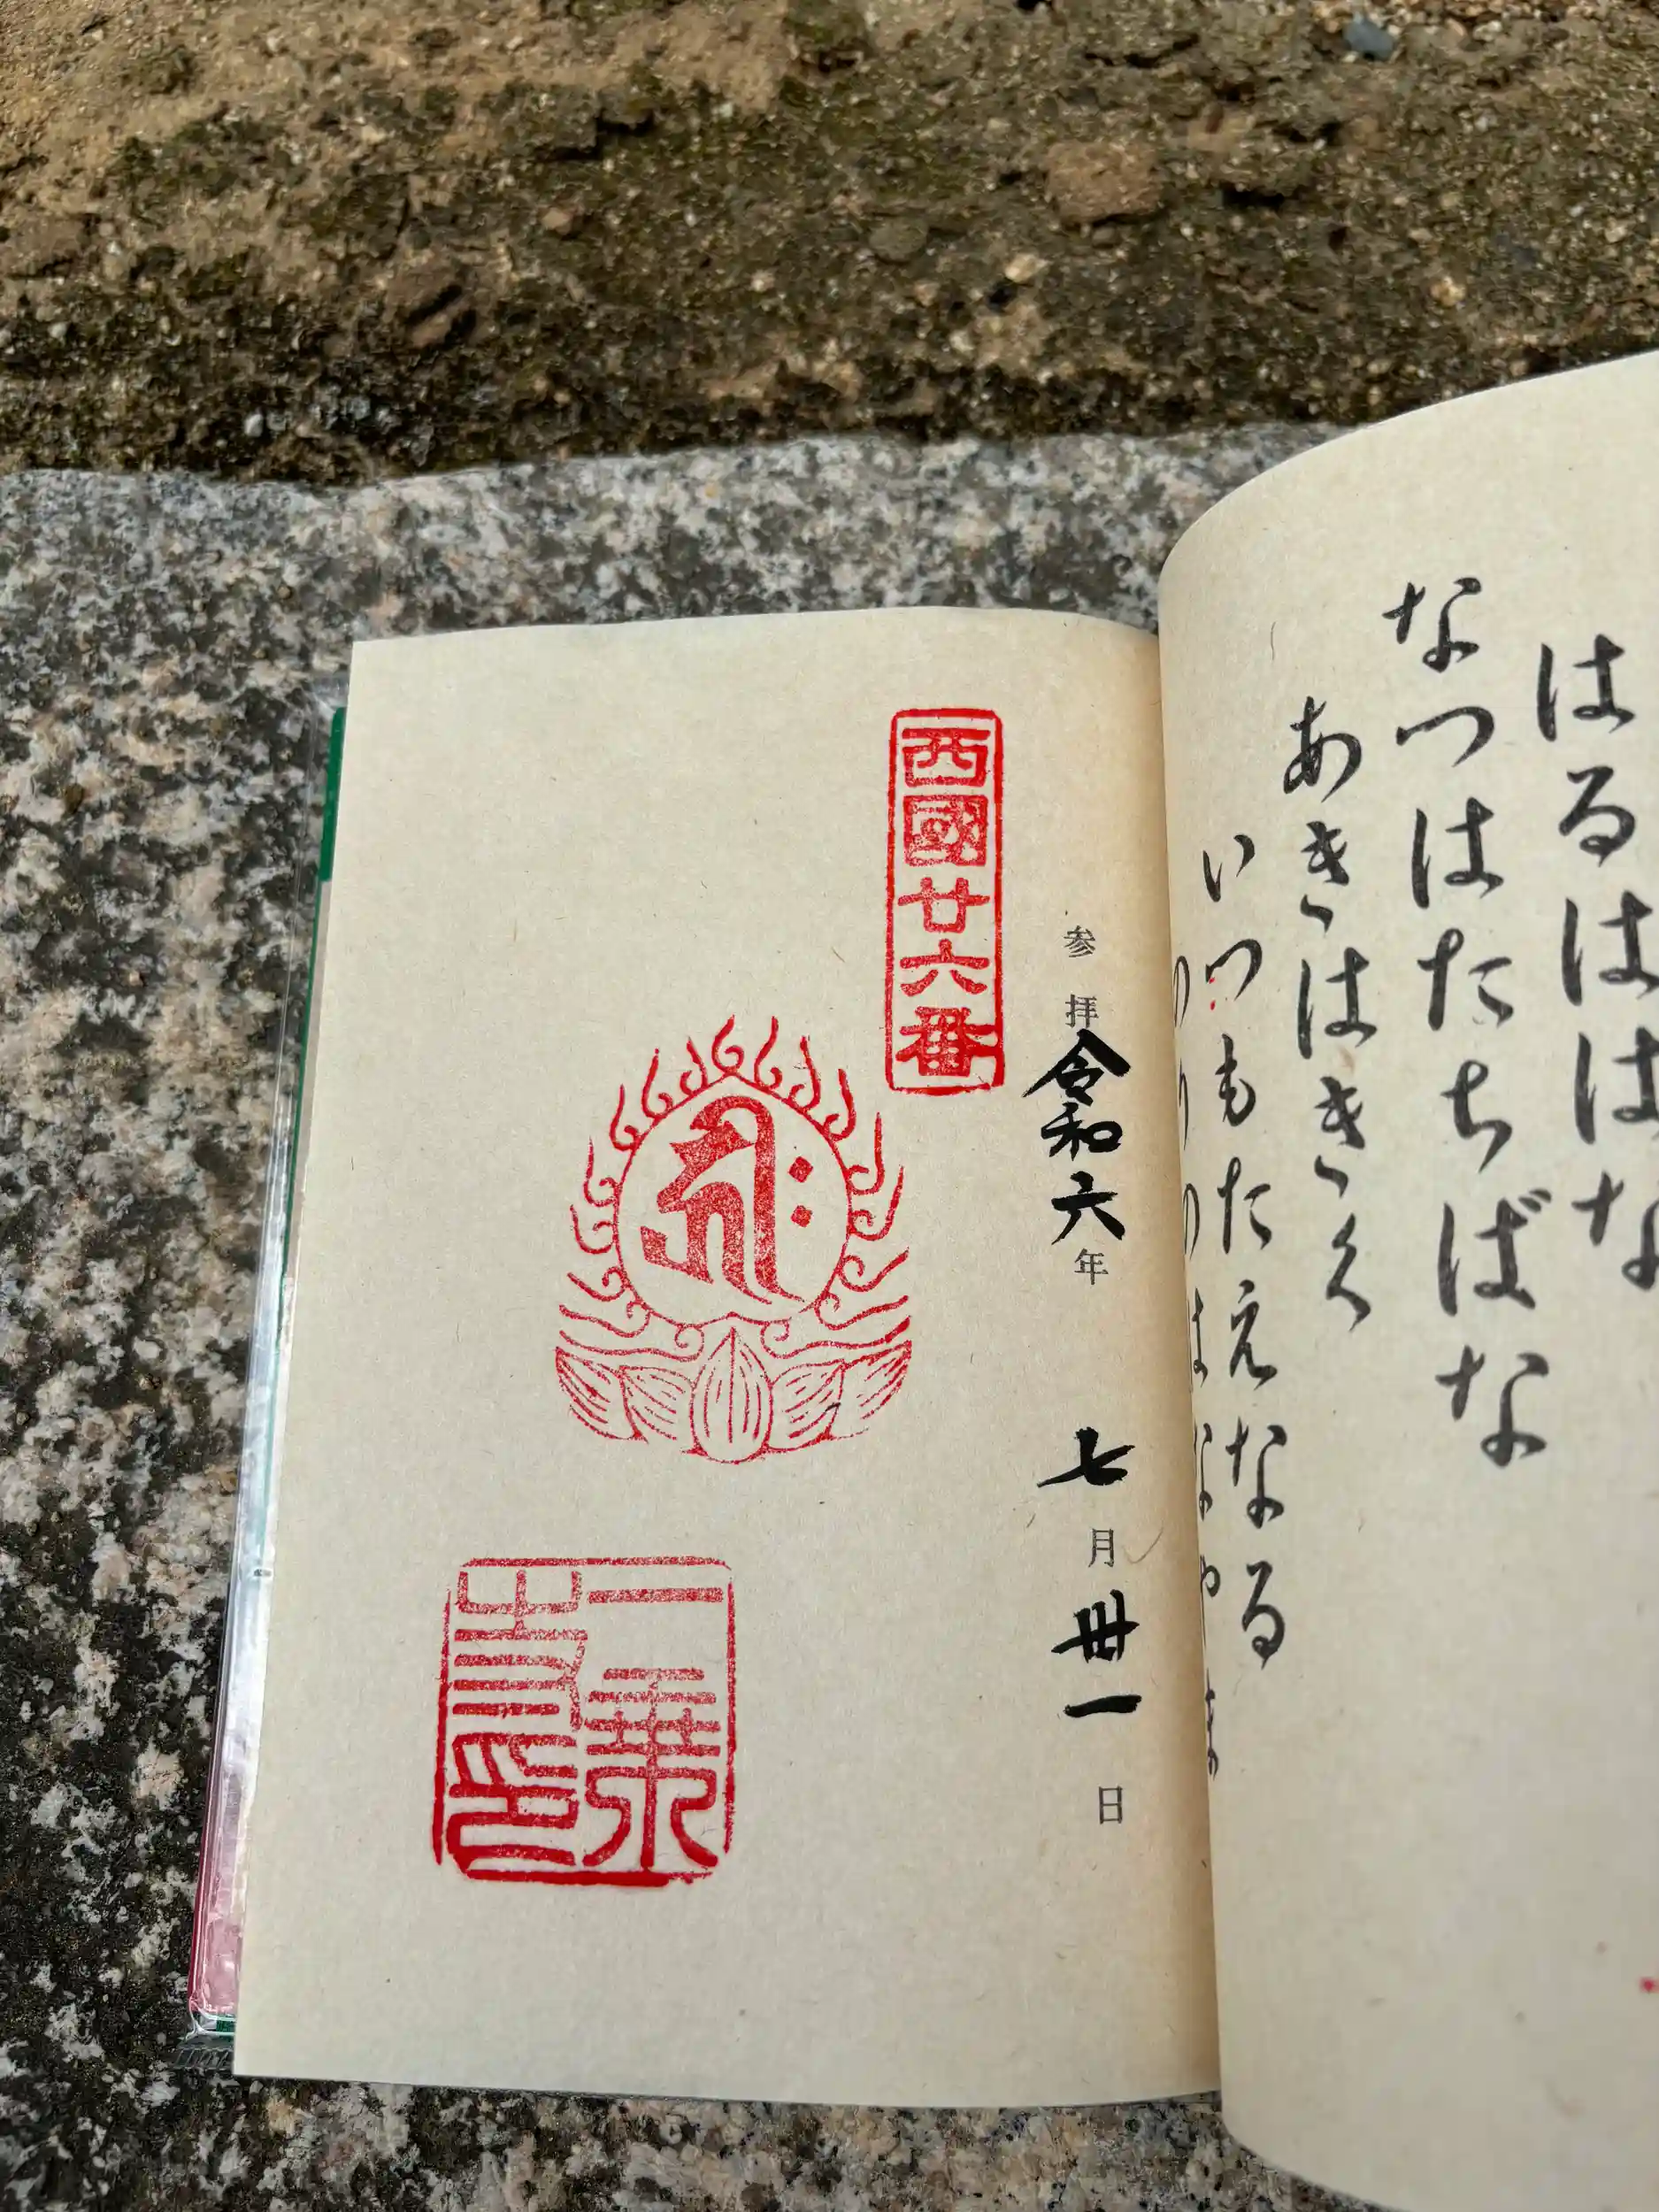 はるははな
なつはたちばな
あきはきく
いつもたえなる
参拝令和六年 七月卅一日
西國廿六番
𑖮𑖿𑖨𑖱𑖾
一乗
寺印